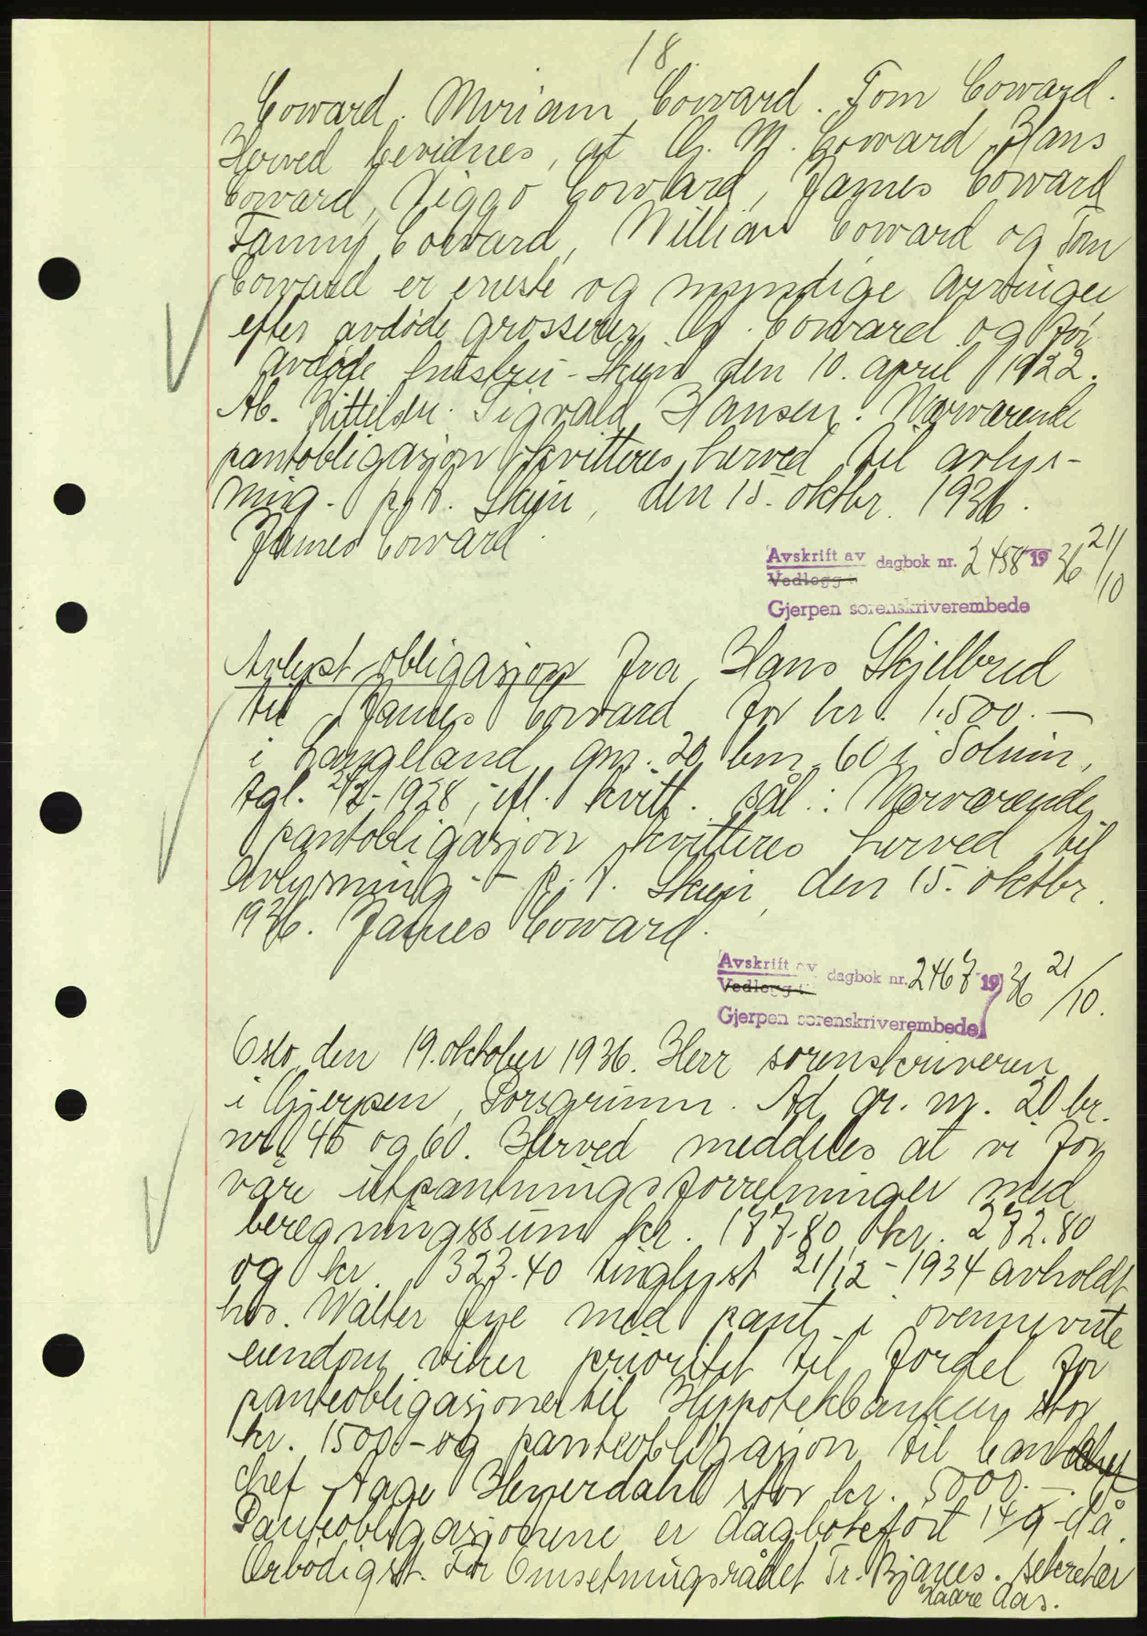 18.
Coward. Miriam Coward. Tom Coward.
Herved bevidnes, at G. M. Coward, Hans
Coward, Viggo Coward, James Coward
Fanny Coward, William Coward og Tom
Coward er eneste og myndige arvinger
efter avdøde grosserer G. Coward og før
avdøde hustru - Skien den 10. april 1922.
Ab. Kittilsen. Sigvald Hansen. Nærværende
pantobligasjon kvitteres herved til avlys-
ning. p. t. Skien, den 15. oktbr. 1936.
James Coward.
Avskrift av dagbok nr. 2458 1936 21/10
Vedlegg
Gjerpen sorenskriverembede
Avlyst obligasjon fra Hans Skjelbred
til James Coward for kr. 1.500.—
i Langeland gnr. 20 bnr. 60 i Solum,
tgl. 1928, ifl. kvitt. sål.: Nærværende
pantobligasjon kvitteres herved til
avlysning - p. t. Skien, den 15. oktbr.
1936. James Coward.
Avskrift av dagbok nr. 2467 1936 21/10.
Vedlegg til
Gjerpen sorenskriverembede
Oslo, den 19. oktober 1936. Herr sorenskriveren
i Gjerpen, Porsgrunn. Ad gr. nr. 20 br.
nr. 45 og 60. Herved meddeles at vi for
våre utpantningsforretninger med
beregningssum kr. 177.80, kr. 272.80
og kr. 323.40 tinglyst 21/12 - 1934 avholdt
hos. Walter Lye med pant i ovennevnte
eiendom viker prioritet til fordel for
panteobligasjoner til Hypotekbanken stor
kr. 1500 - og panteobligasjon til bank
chef Aage Heyerdahl stor kr. 5000.—.
Panteobligasjonene er dagbokført 14/9 - d. å.
Ærbødigst. For Omsetningsrådet Tr. Bjanes. sekretær
Kaare Aas.